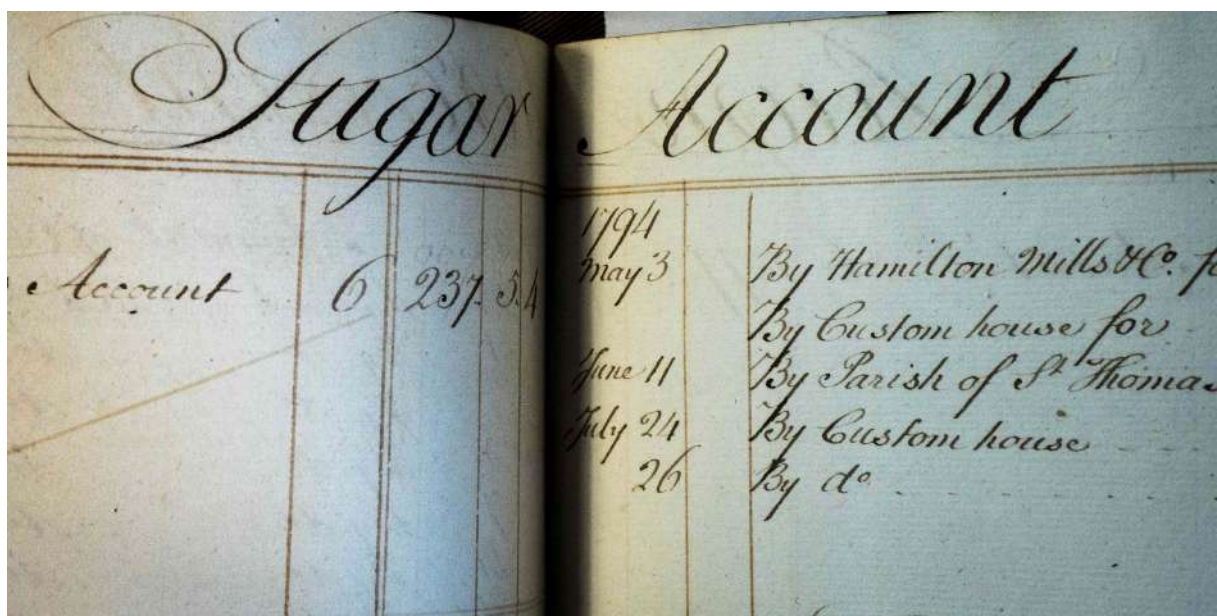 Sugar Account
Account 6 237. 5. 4
1794
May 3 By Hamilton Mills & Co. f
By Custom house for
June 11 By Parish of St Thomas
July 24 By Custom house
26 By do